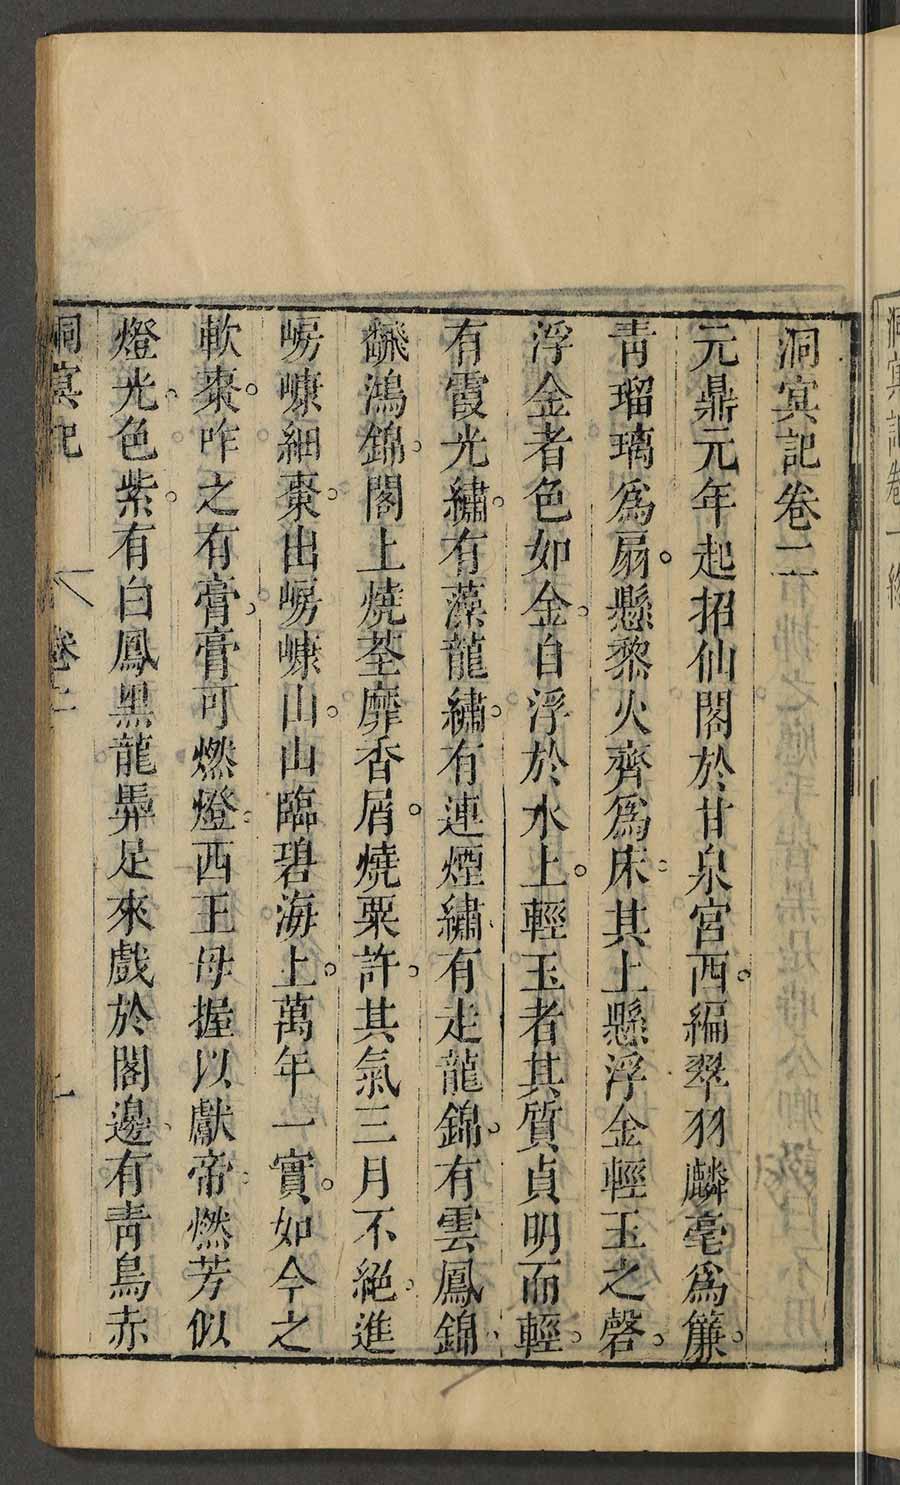 洞冥記卷二
元鼎元年起招仙閣於甘泉宮西編翠羽麟毫爲簾
青瑠璃爲扇懸黎火齊爲床其上懸浮金輕玉之磬
浮金者色如金自浮於水上輕玉者其質貞明而輕
有霞光繡有藻龍繡有連煙繡有走龍錦有雲鳳錦
飜鴻錦閣上燒荃蘼香屑燒粟許其氣三月不絕進
㟍嵻細棗出㟍嵻山山臨碧海上萬年一實如今之
軟棗咋之有膏膏可燃燈西王母握以獻帝燃芳似
燈光色紫有白鳳黑龍馵足來戲於閣邊有靑鳥赤
洞冥記 卷二 一
洞冥記卷一終